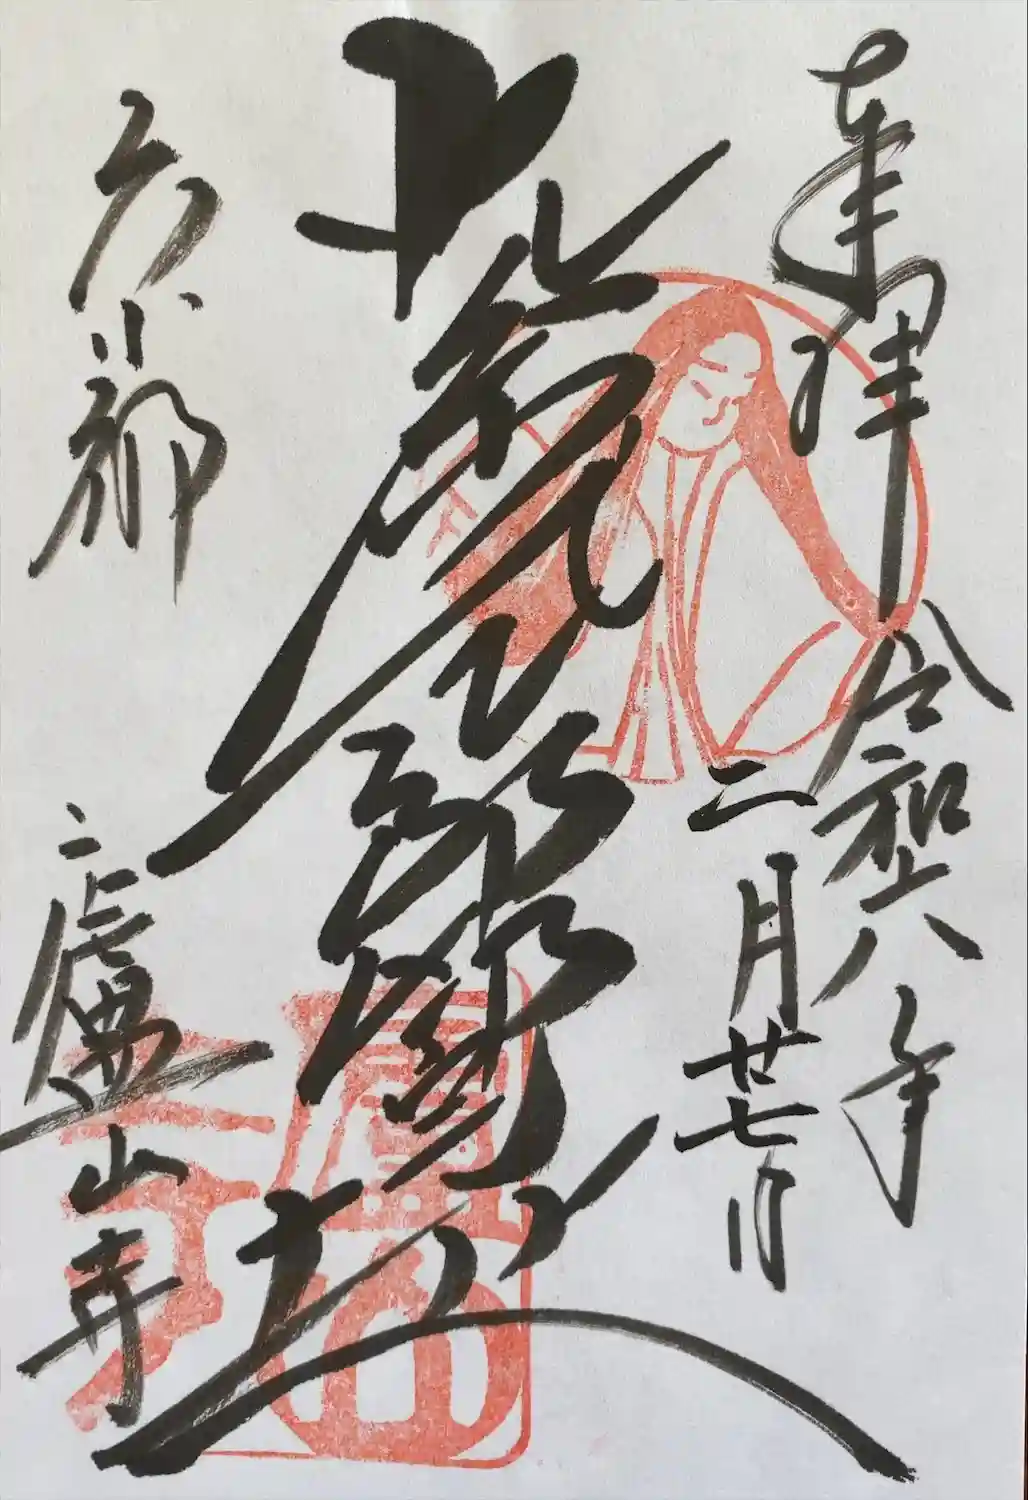 奉拝 令和六年
二月廿七日
紫式部
京都 廬山寺